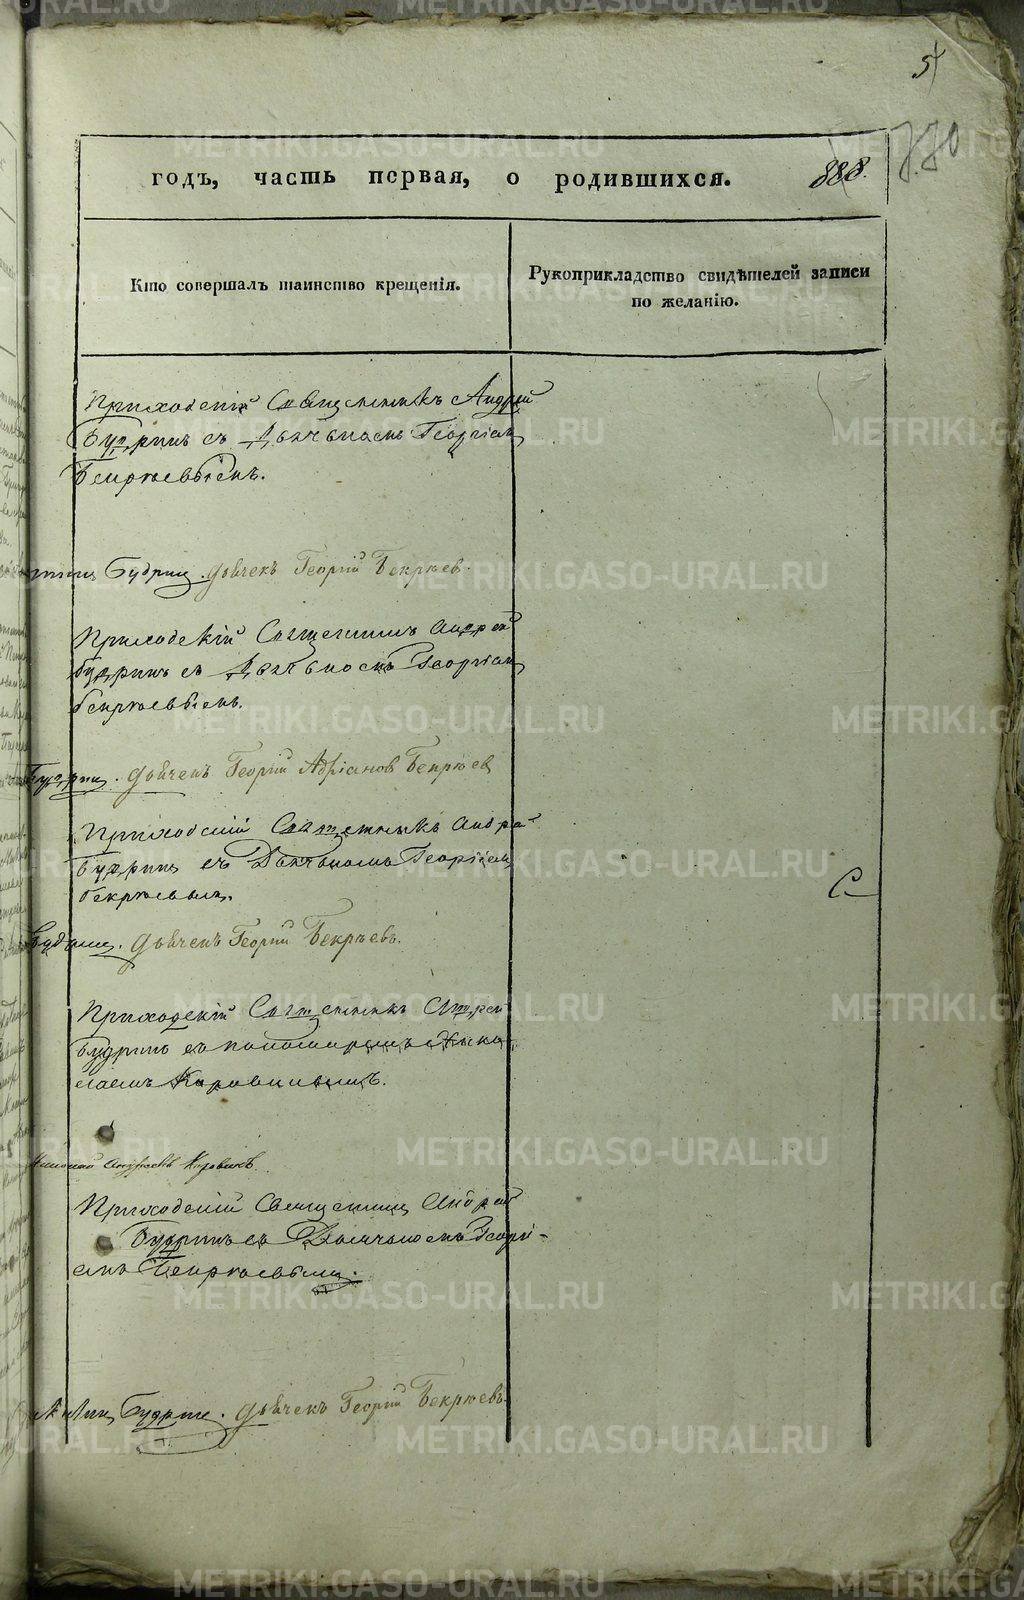 годъ, часть первая, о родившихся. 888.
Кто совершалъ таинство крещенія.
Рукоприкладство свидѣтелей записи
по желанію.
Приходскій Священникъ Андрей
Будринъ съ Дьячькомъ Георгіем
Бекрюевымъ.
Будрин. дьячекъ Георгій Бекрюев.
Приходскій Священникъ Андрей
Будринъ съ Дьячькомъ Георгіем
бекрюевымъ.
Будрин. дьячекъ Георгій Адріанов Бекрюев
Приходскій Священникъ Андрей
Будрин съ Дьячькомъ Георгіем
бекрюевым.
Будрин. дьячекъ Георгий Бекрюевъ.
Приходскій Священникъ Андрей
Будринъ съ пономаремъ Нико
лаемъ Коровинымъ.
Николай Андреевъ Коровинъ.
Приходскій Священник Андрей
Будринъ съ Дьячькомъ Георгі-
емъ Бекрюевым.
Будрин. дьячекъ Георгий Бекрюевъ.
METRIKI.GASO-URAL.RU